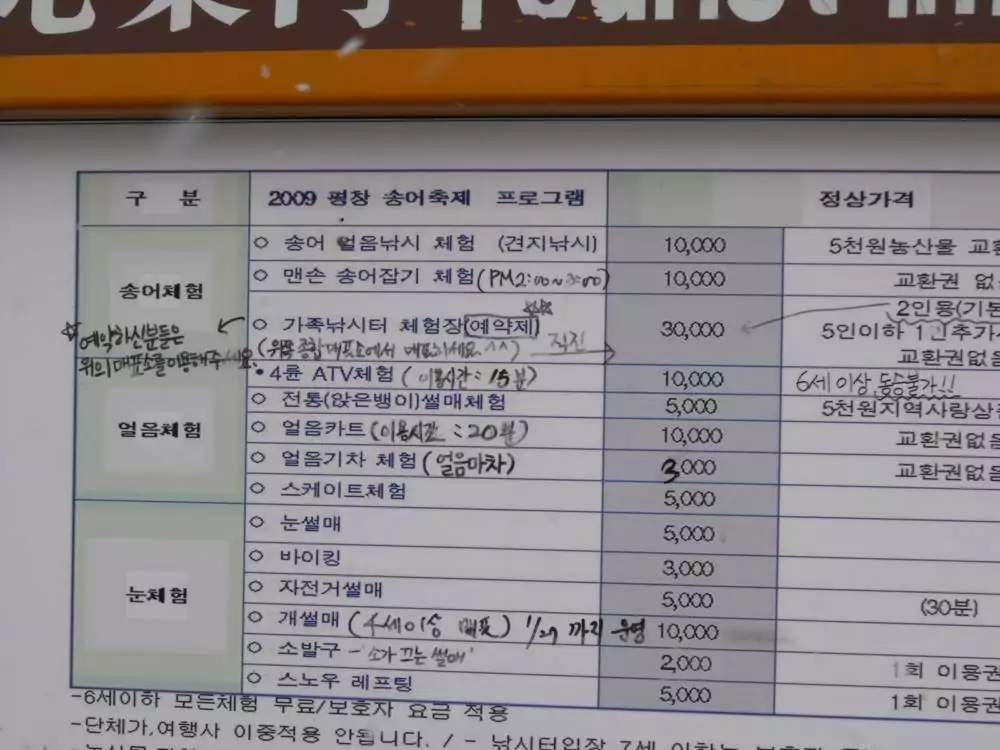 Tourist In
구 분 2009 평창 송어축제 프로그램 정상가격
송어체험
○ 송어 얼음낚시 체험 (견지낚시) 10,000 5천원농산물 교환
○ 맨손 송어잡기 체험 (PM2:00~3:00) 10,000 교환권 없음
○ 가족낚시터 체험장(예약제) 30,000 2인용(기본
5인이하 1인추가
(위쪽 종합매표소에서 매표하세요.^^) 직진 교환권없음
☆예약하신분들은
위의 매표소를 이용해주세요.
얼음체험
• 4륜 ATV체험 (이용시간 : 15분) 10,000 6세이상 동승불가!!
○ 전통(앉은뱅이)썰매체험 5,000 5천원지역사랑상
○ 얼음카트 (이용시간 : 20분) 10,000 교환권없음
○ 얼음기차 체험 (얼음마차) 3,000 교환권없음
○ 스케이트체험 5,000
눈체험
○ 눈썰매 5,000
○ 바이킹 3,000
○ 자전거썰매 5,000 (30분)
○ 개썰매 (4세이상 매표) 1/29 까지 운영 10,000
○ 소발구 - '소가 끄는 썰매' 2,000 1회 이용권
○ 스노우 레프팅 5,000 1회 이용권
-6세이하 모든체험 무료/보호자 요금 적용
-단체가,여행사 이중적용 안됩니다. / - 낚시터입장 7세